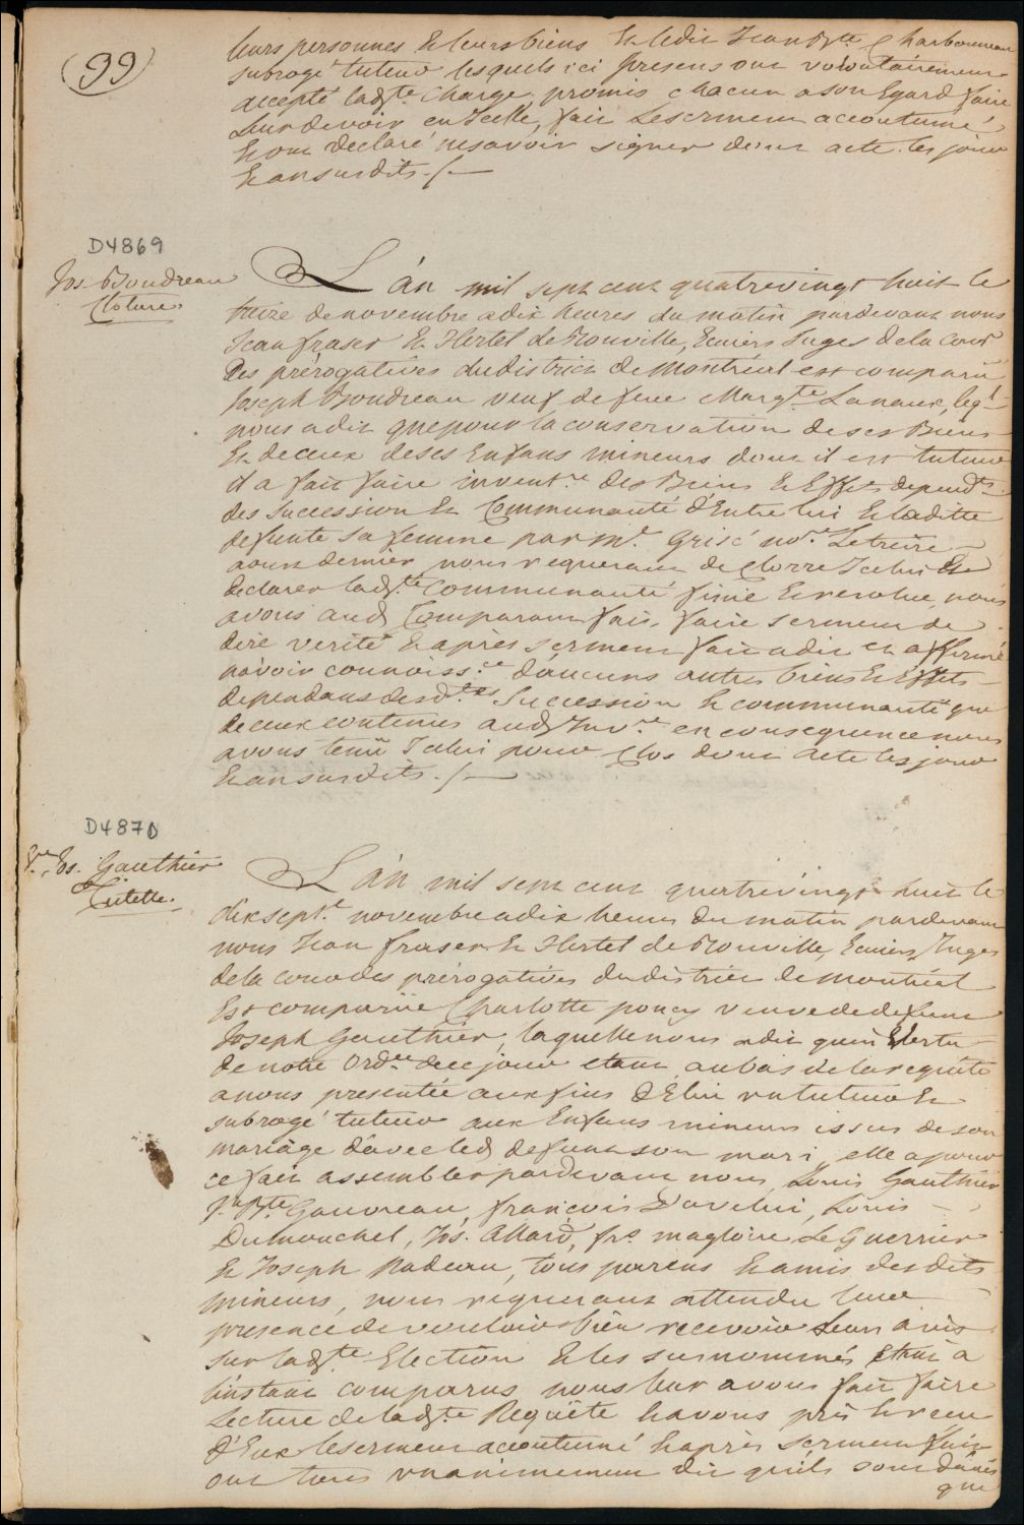 (99)
leurs personnes & leurs biens & ledit Jean Bte Charbonneau
subrogé tuteur lesquels ici presens ont volontairement
accepté ladte Charge promis chacun a son Egard faire
leur devoir en Icelle, fait le serment accoutumé
& ont declaré ne savoir signer dont acte les jour
& an susdits ./.
D4869
Jos. Boudreau
Cloture
L'án mil sept cent quatrevingt huit le
treize de novembre a dix heures du matin pardevant nous
Jean fraser & Hertel de Rouville, Ecuiers Juges de la Cour
Des prérogatives du district de Montréal est comparu
Joseph Boudreau veuf de feue Margte Lanaux, leql
nous a dit que pour la conservation de ses Biens
& de ceux de ses Enfans mineurs dont il est tuteur
il a fait faire inventre des Biens & Effets dependts
des Succession & Communauté d'Entre lui & laditte
defunte sa femme par Mr Grisé nore Le treize
aoust dernier nous requerant de Clorre Icelui &
declarer ladte Communauté finie & resolue, nous
avons aud Comparant fait faire serment de
dire verité & après serment fait a dit et affirmé
n'avoir connoissce d'aucuns autres biens & Effets
dependans desdtes Succession & communauté que
de ceux contenus aud Invre en consequence nous
avons tenu Icelui pour Clos dont acte les jour
& an susdits ./.
D4870
Ve Jos. Gauthier
Tutelle.
L'án mil sept cent quatrevingt huit le
dix sept novembre a dix heures du matin pardevant
nous Jean fraser & Hertel de Rouville, Ecuiers, Juges
de la cour des prérogatives du district de Montréal
Est comparüe Charlotte poncy veuve de defunt
Joseph Gauthier, laquelle nous a dit qu'en Vertu
de notre Ordce de ce jour etant au bas de la requête
a nous presentée aux fins d'Elire un tuteur &
subrogé tuteur aux Enfans mineurs issus de son
mariage d'avec led defunt son mari, elle a pour
ce fait assembler pardevant nous, Louis Gauthier
J. Bte Gauvreau, françois Davelui, Louis
Dumouchel, Jos. Allard, frs magloire Le Guerrier
& Joseph Nadeau, tous parens & amis desdits
mineurs, nous requerant attendu leur
presence de vouloir bien recevoir Leurs avis
sur ladte Election & les susnommés étant à
l'instant comparus nous leur avons fait faire
Lecture de ladte Requête & avons pris & reçu
d'Eux le serment accoutumé & après serment fait
ont tous unanimement dit qu'ils sont d'avis
que